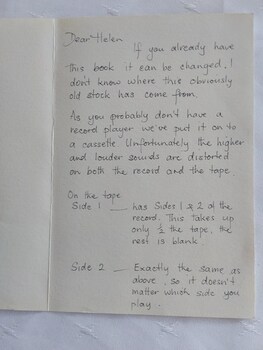 Dear Helen
If you already have
this book it can be changed. I
don't know where this obviously
old stock has come from.
As you probably don't have a
record player we've put it on to
a cassette. Unfortunately the higher
and louder sounds are distorted
on both the record and the tape.
On the tape
Side 1 — has Sides 1 & 2 of the
record. This takes up
only ½ the tape, the
rest is blank
Side 2 — Exactly the same as
above, so it doesn't
matter which side you
play.